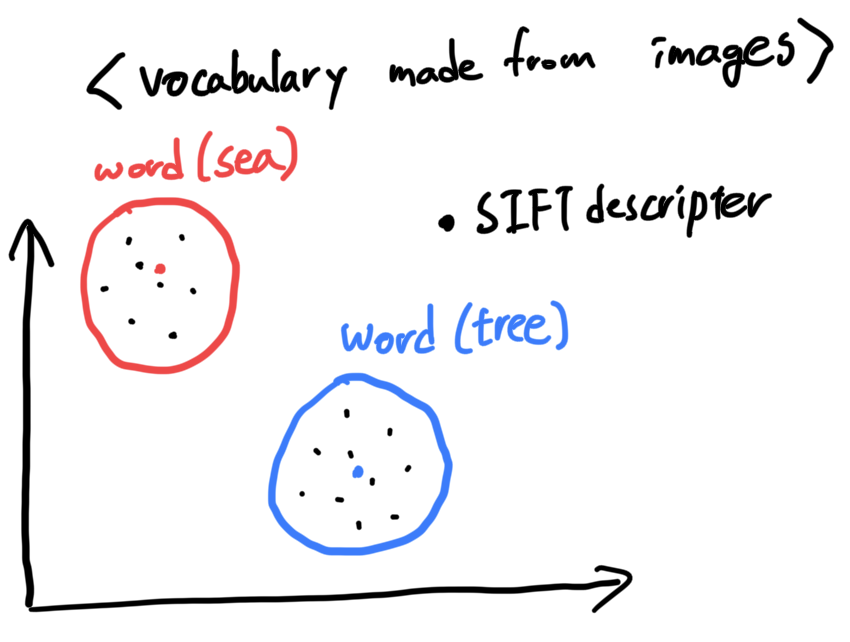 <vocabulary made from images>
word (sea)
• SIFT descripter
word (tree)